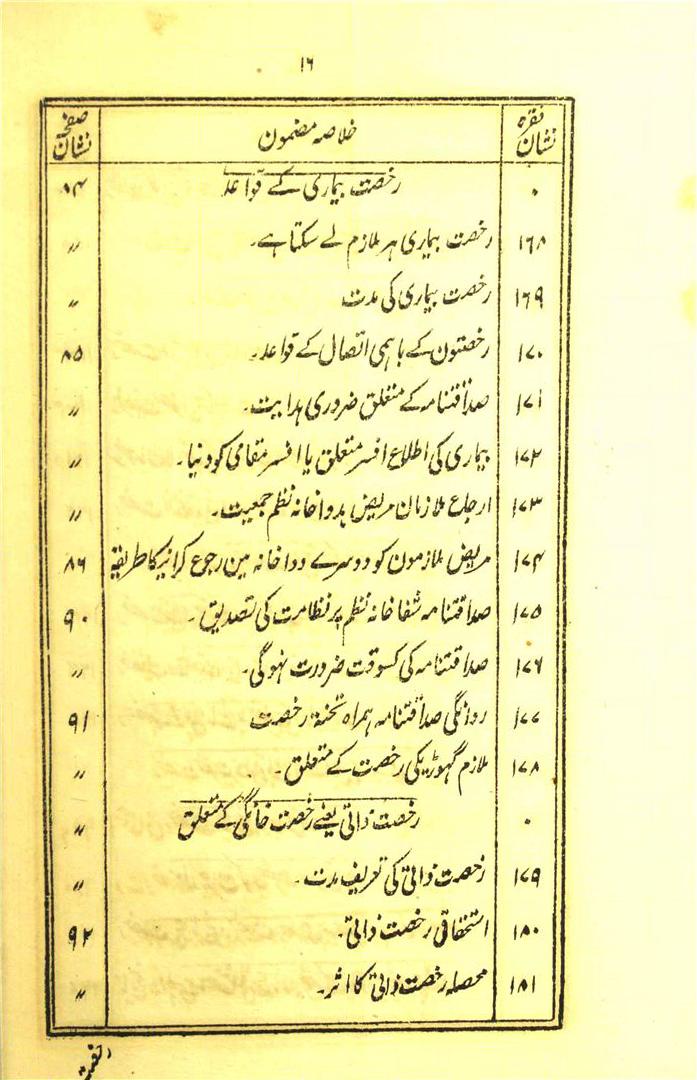 ۱۶
نشان فقرہ خلاصہ مضمون نشان صفحہ
۰ رخصت بیماری کے قواعد ۸۴
۱۶۸ رخصت بیماری ہر ملازم لے سکتا ہے۔ 〃
۱۶۹ رخصت بیماری کی مدت 〃
۱۷۰ رخصتون کے باہمی اتصال کے قواعد۔ ۸۵
۱۷۱ صداقتنامہ کے متعلق ضروری ہدایت۔ 〃
۱۷۲ بیماری کی اطلاع افسر متعلق یا افسر مقامی کو دنیا۔ 〃
۱۷۳ ارجاع ملازمان مریض بدواخانہ نظم جمعیت۔ 〃
۱۷۴ مریض ملازمون کو دوسرے دواخانہ مین رجوع کرانیکا طریقہ ۸۶
۱۷۵ صداقتنامہ شفاخانہ نظم پر نظامت کی تصدیق۔ ۹۰
۱۷۶ صداقتنامہ کی کسوقت ضرورت نہوگی۔ 〃
۱۷۷ روانگی صداقتنامہ ہمراہ تختہ رخصت ۹۱
۱۷۸ ملازم گہوڑیکی رخصت کے متعلق۔ 〃
۰ رخصت ذاتی یعنے رخصت خانگی کے متعلق 〃
۱۷۹ رخصت ذاتی کی تعریف مدت۔ 〃
۱۸۰ استحقاق رخصت ذاتی۔ ۹۲
۱۸۱ محصلہ رخصت ذاتی کا اثر۔ 〃